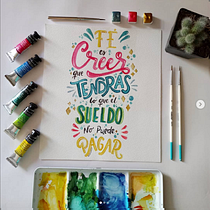 FE
es
Creer
que
TENDRÁS
lo que el
SUELDO
No Puede
PAGAR